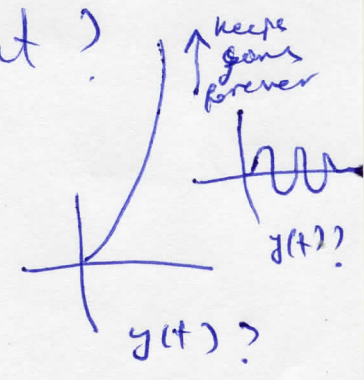 t ?
keeps
goins
forever
y(t)?
y(t)?